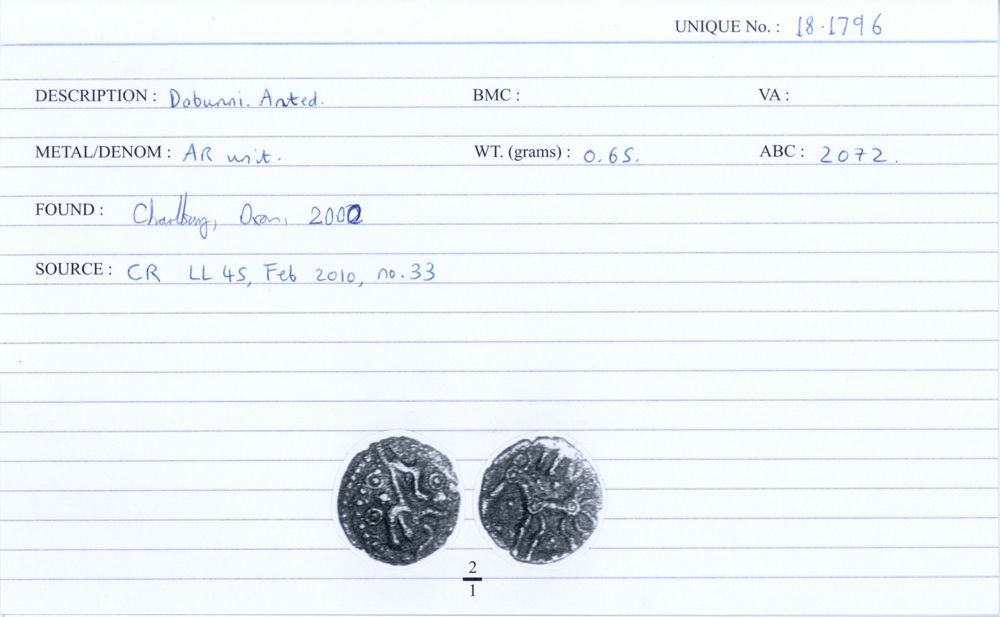 UNIQUE No. : 18.1796
DESCRIPTION : Dobunni. Anted. BMC : VA :
METAL/DENOM : AR unit. WT. (grams) : 0.65. ABC : 2072.
FOUND : Charlbury, Oxon, 2002
SOURCE : CR LL 45, Feb 2010, no. 33
2
1